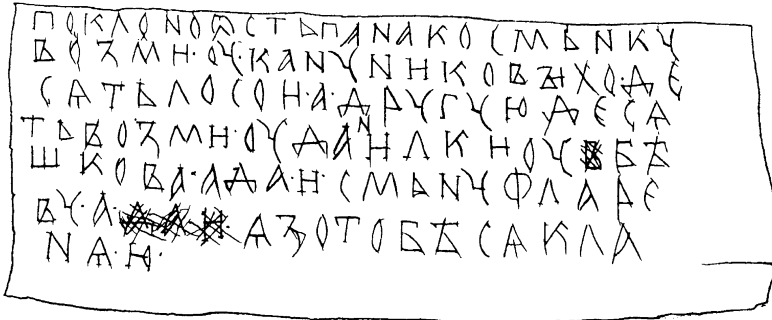 ПОКЛОНОѾСТЬПАНАКОСМЬНКꙋ
ВОЗМИ·ОУ·КАНУНИКОВЪИХО·ДЕ
СѦТЬЛОСОИ·А·ДРУГУЮДЕСѦ
ТЬВОЗМИ·ОУДАНИЛКИОУБѢ
ШКОВА·АДАИ·СМЬНУФЛАРЕ
ВУ·А·ѦЗОТОБѢСѦКЛА
НѦ·Ю·